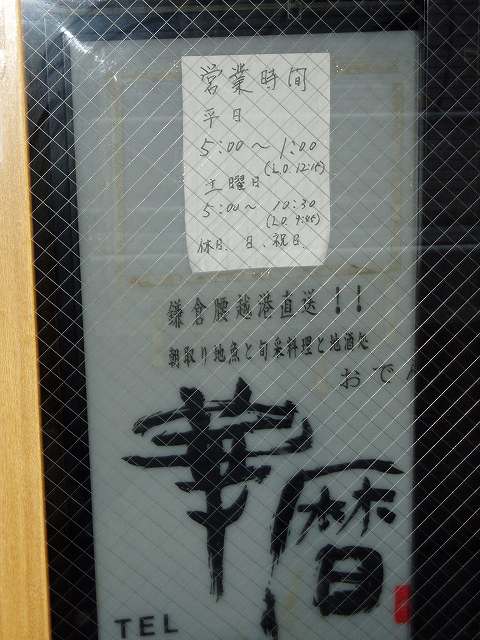 営業時間
平日
5:00〜1:00
(L.O. 12:15)
土曜日
5:00〜10:30
(L.O. 9:45)
休日、日、祝日、
鎌倉腰越港直送!!
朝取り地魚と旬菜料理と地酒処
おでん
華暦
TEL